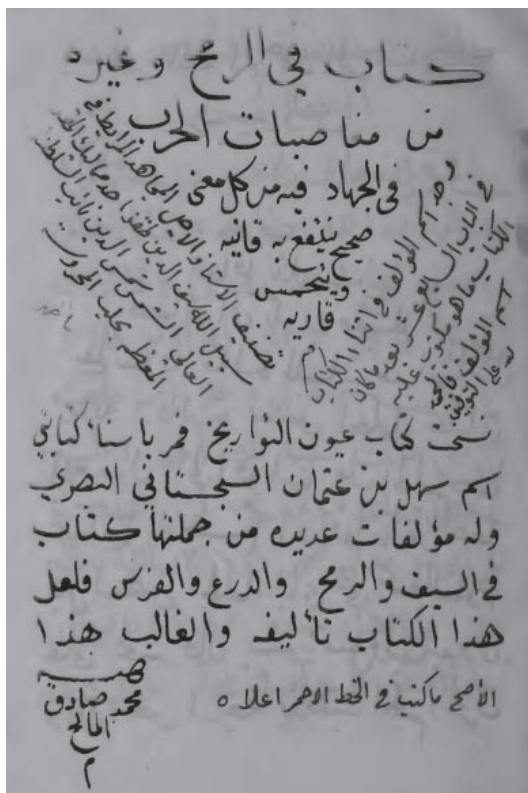 كتاب في الرمح وغيره
من مناصبات الحرب
في الجهاد فيه من كل معنى
صحيح ينتفع به قانيه
ويتحمس
قاريه
تصنيف الاستاذ الاصيل المجاهد المرابط في
سبيل الله لاجين الدين طقز احد مماليك المقر
العالي الشمس شمس الدين نائب السلطنة
المعظمة بحلب المحروسة
وجد اسم المؤلف في اثناء الكتاب
في الباب السابع عشر بعد ما كان
الكتاب ما هو مكتوب عليه
اسم المؤلف فالحمد
لله على التوفيق
نسخت كتاب عيون التواريخ فمر باسنا كتابتي
اسم سهل بن عثمان السجستاني البصري
وله مؤلفات عديده من جملتها كتاب
في السيف والرمح والدرع والفرس فلعل
هذا الكتاب تأليفه والغالب هذا
الأصح ما كتب في الخط الاحمر اعلاه
محمد صادق
المالح